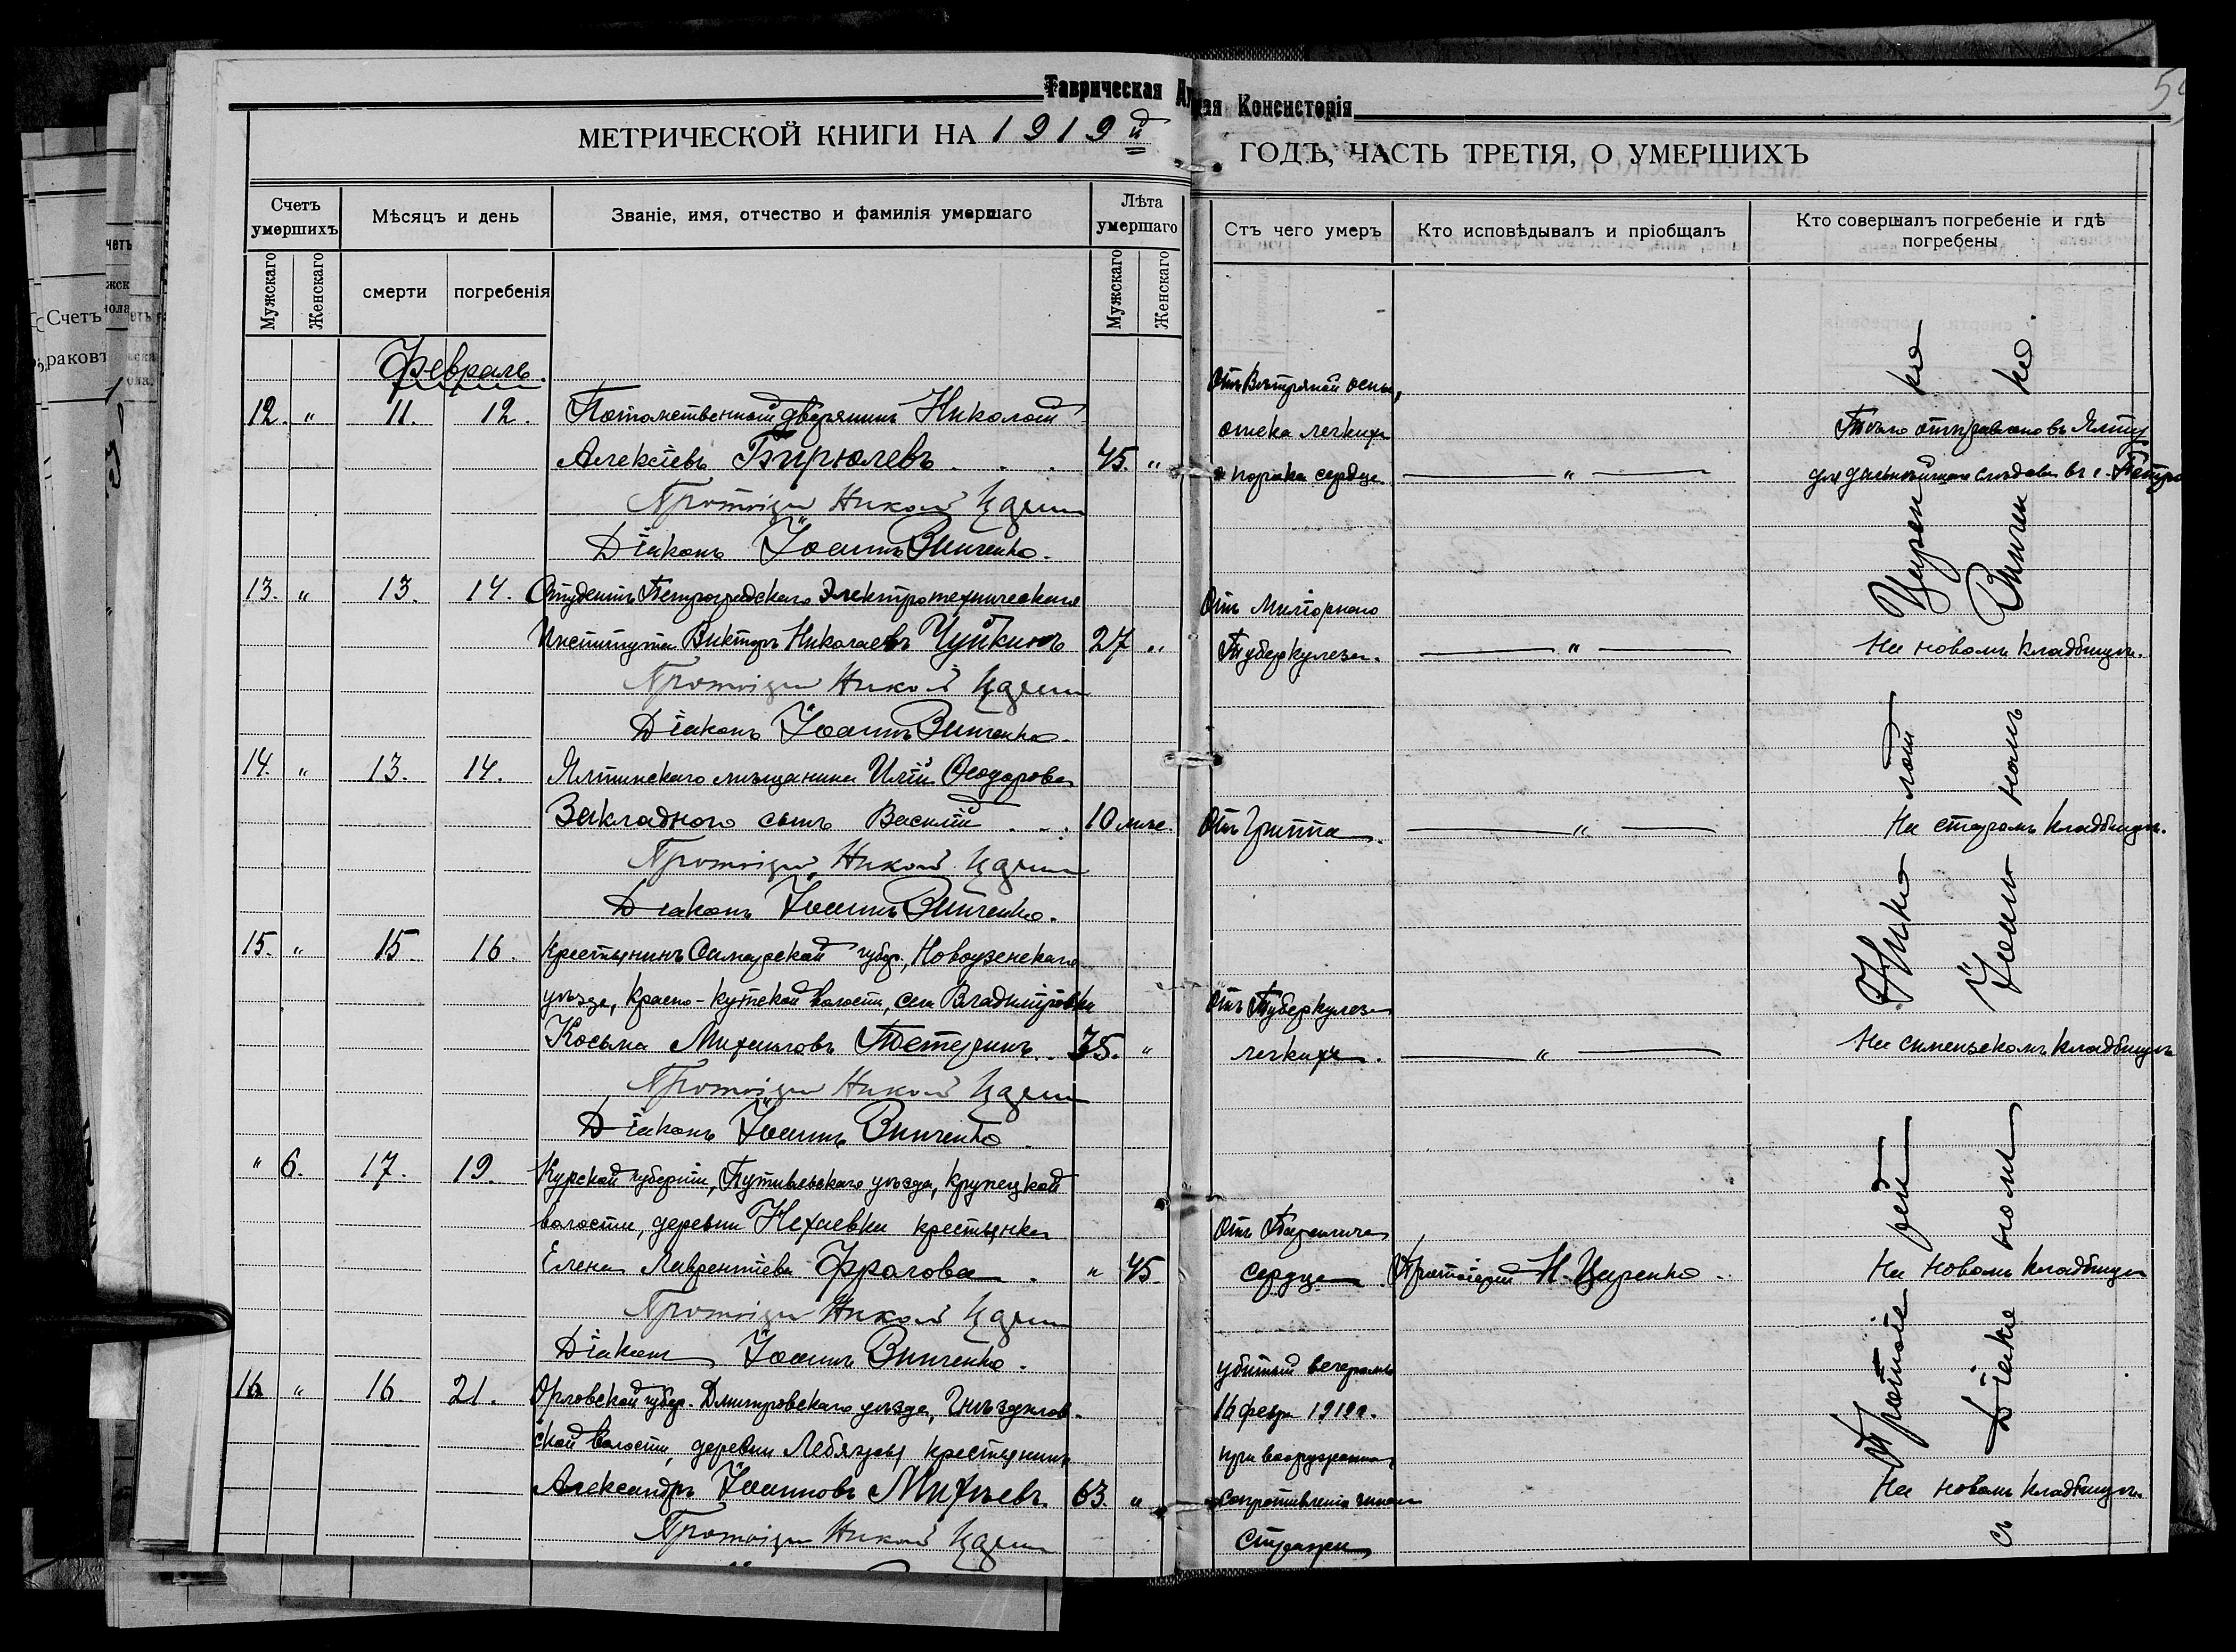 Таврическая Ду
ная Консисторія
МЕТРИЧЕСКОЙ КНИГИ НА 1919й
ГОДЪ, ЧАСТЬ ТРЕТІЯ, О УМЕРШИХЪ
Счетъ умершихъ
Мѣсяцъ и день
Званіе, имя, отчество и фамилія умершаго
Лѣта умершаго
Отъ чего умеръ
Кто исповѣдывалъ и пріобщалъ
Кто совершалъ погребеніе и гдѣ погребены
Мужскаго
Женскаго
смерти
погребенія
Мужскаго
Женскаго
Февраль.
12. " 11. 12. Потомственный дворянинъ Николай
Алексіевъ Бирюлевъ . . . 45. "
Отъ Вѣтряной оспы,
отека легкихъ
и порока сердца — " —
Тѣло отправлено въ Ялту
для дальнѣйшаго слѣдов. въ г. Петро
Протоіерей Николай Царенко
Діаконъ Іоаннъ Винченко.
13. " 13. 14. Студентъ Петроградскаго Электротехническаго
Института Викторъ Николаевъ Чуйкинъ 27 "
Отъ Миліарнаго
Туберкулеза. — " —
На новомъ кладбищѣ.
Протоіерей Николай Царенко
Діаконъ Іоаннъ Винченко
14. " 13. 14. Ялтинскаго мѣщанина Иліи Ѳеодорова
Закладного сынъ Василій . . . 10 мѣс.
Отъ Гриппа. — " —
На старомъ кладбищѣ.
Протоіерей Николай Царенко
Діаконъ Іоаннъ Винченко.
15. " 15 16. Крестьянинъ Самарской губер., Новоузенскаго
уѣзда, Красно-кутской волости, села Владиміровки
Косьма Михаиловъ Тетеринъ . . 35. "
Отъ Туберкулеза
легкихъ. — " —
На симеизскомъ кладбищѣ
Протоіерей Николай Царенко
Діаконъ Іоаннъ Винченко
" 6. 17. 19. Курской губерніи, Путивльскаго уѣзда, Крупецкой
волости, деревни Нехаевки крестьянка
Елена Лаврентіева Фролова . " 45.
Отъ Паралича
сердца.
Протоіерей Н. Царенко.
На новомъ кладбищѣ
Протоіерей Николай Царенко
Діаконъ Іоаннъ Винченко.
16 " 16 21. Орловской губер. Дмитровскаго уѣзда,
ской волости, деревни крестьянинъ
Александръ Іоанновъ Михѣевъ. 63. "
убитый вечеромъ
16 февр. 1919 г.
при вооруженномъ
сопротивленіи чинамъ
Стражи
На новомъ кладбищѣ.
Протоіерей Николай Царенко
Протоіерей Николай Царенко
съ Діакономъ Іоанномъ Винченко.